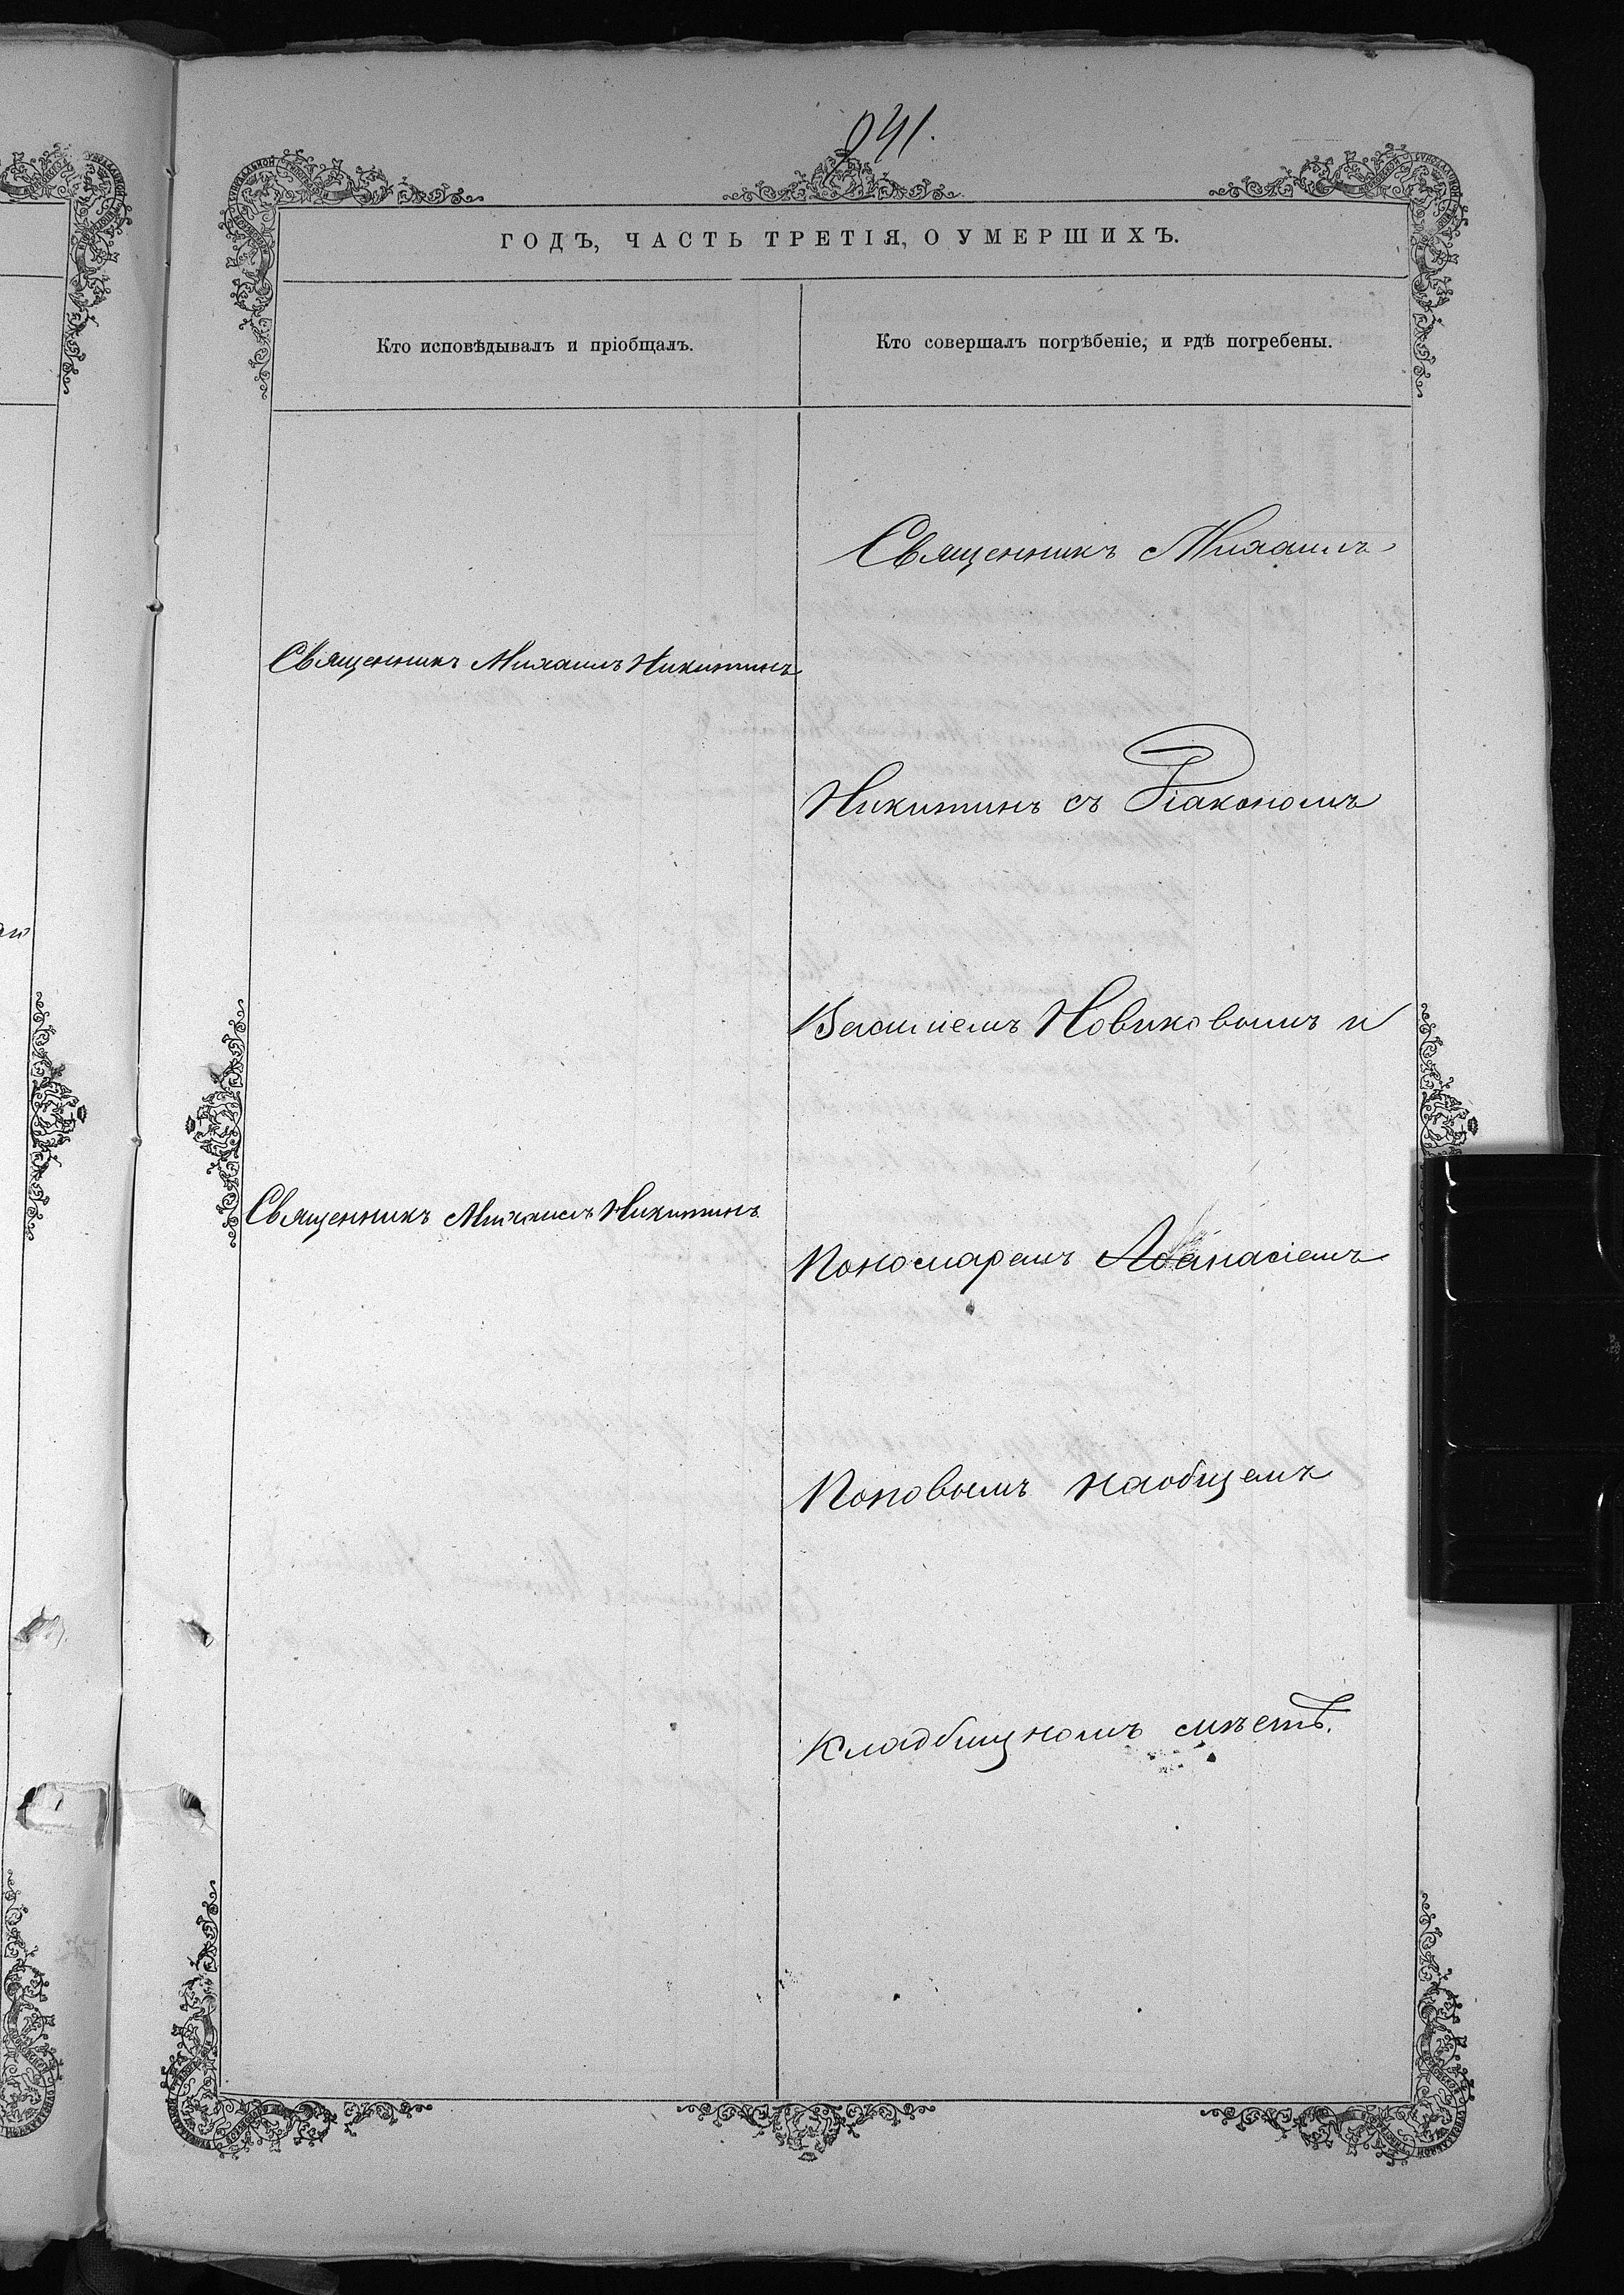 941.
ГОДЪ, ЧАСТЬ ТРЕТІЯ, О УМЕРШИХЪ.
Кто исповѣдывалъ и пріобщалъ.
Кто совершалъ погрѣбеніе, и гдѣ погребены.
Священникъ Михаилъ Никитинъ
Священникъ Михаилъ Никитинъ
Священникъ Михаилъ
Никитинъ съ Діакономъ
Василіемъ Новиковымъ и
Пономаремъ Афанасіемъ
Поповымъ на общемъ
кладбищномъ мѣстѣ.